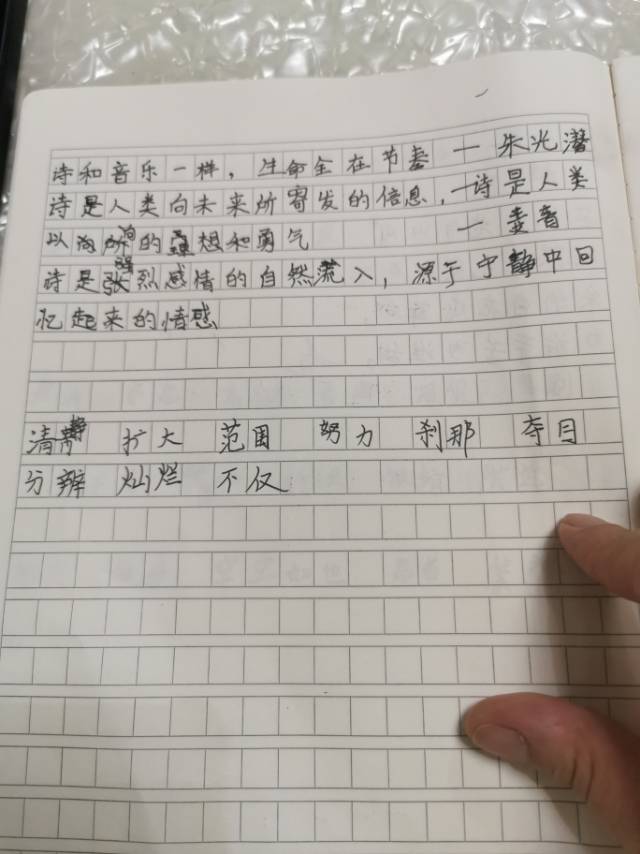 诗和音乐一样，生命全在节奏 — 朱光潜
诗是人类向未来所寄发的信息，诗是人类
以向的想和勇气 —
诗是强烈感情的自然流入，源于宁静中回
忆起来的情感
清静 扩大 范围 努力 刹那 夺目
分辨 灿烂 不仅